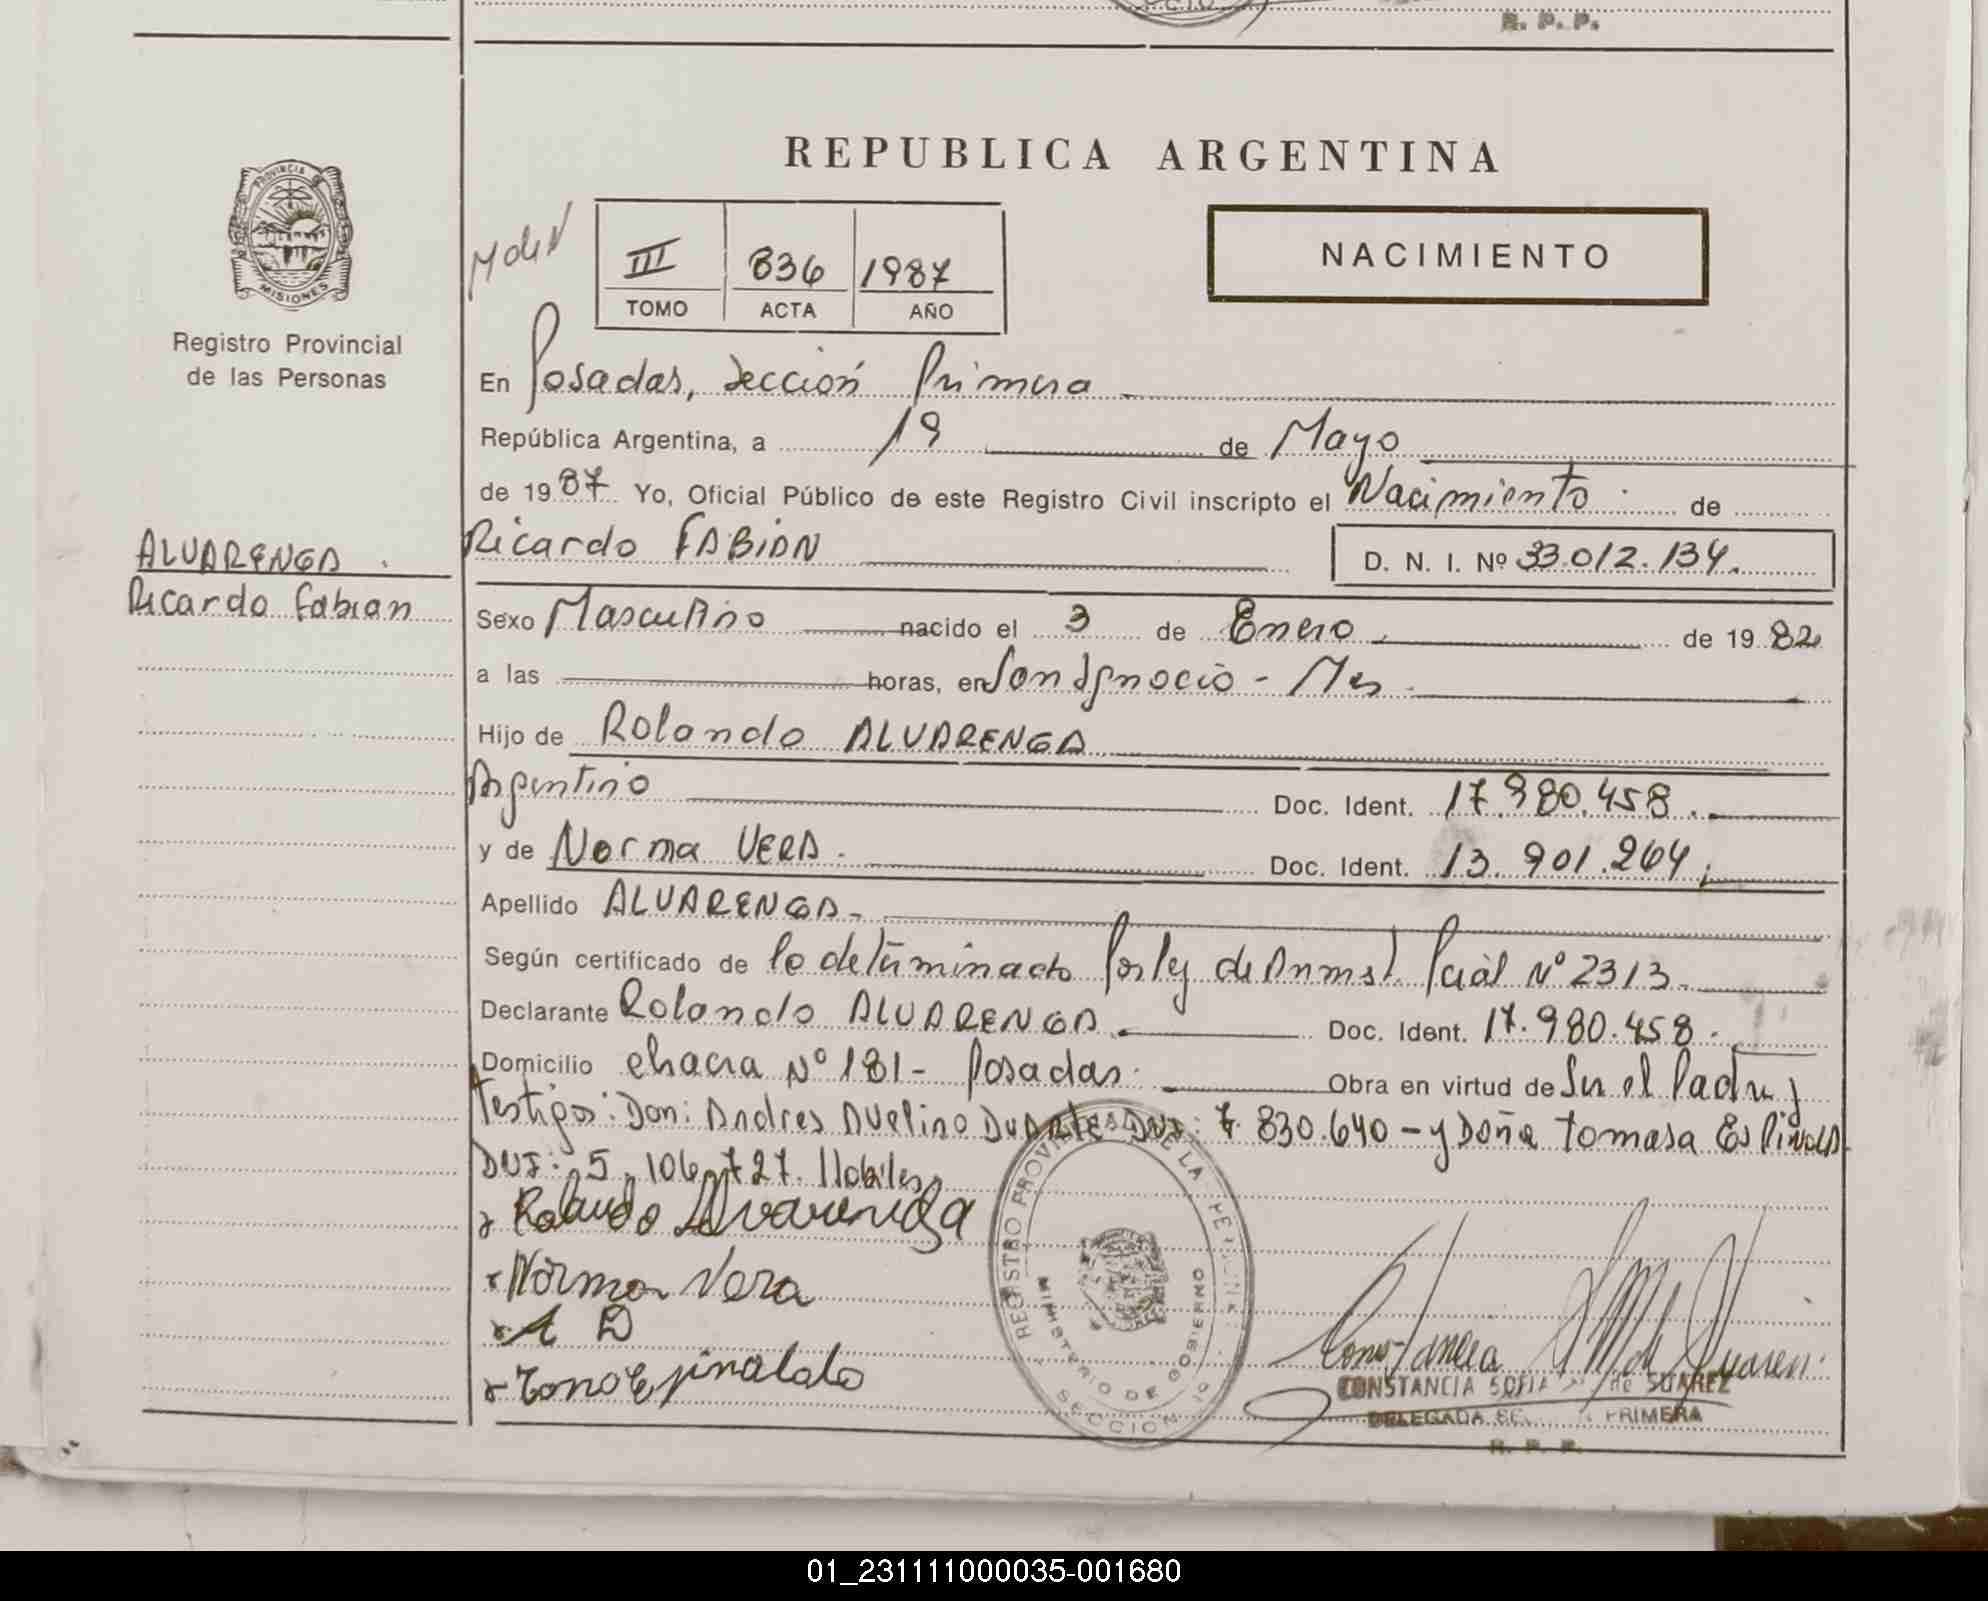 R. P. P.
REPUBLICA ARGENTINA
PROVINCIA DE
MISIONES
Registro Provincial
de las Personas
III 836 1987
TOMO ACTA AÑO
NACIMIENTO
En Posadas, Sección Primera
República Argentina, a 19 de Mayo
de 1987 Yo, Oficial Público de este Registro Civil inscripto el Nacimiento de
Ricardo FABIAN D. N. I. Nº 33.012.134.
ALVARENGA.
Ricardo Fabian
Sexo Masculino nacido el 3 de Enero de 1982
a las horas, en San Ignacio - Mes
Hijo de Rolando ALVARENGA
Argentino Doc. Ident. 17.980.458.
y de Norma VERA. Doc. Ident. 13.901.264.
Apellido ALVARENGA.
Según certificado de lo determinado por ley de Amnst. Pcial Nº 2313.
Declarante Rolando ALVARENGA. Doc. Ident. 17.980.458.
Domicilio chacra Nº 181 - Posadas. Obra en virtud de Ser el Padre y
Testigos: Don: Andres Avelino DUARTE DNI: 7.830.640 - y Doña Tomasa
DNI: 5.106.727. Hábiles
x Rolando Alvarenga
x Norma Vera
x A D
x
REGISTRO PROVINCIAL DE LAS PERSONAS
MINISTERIO DE GOBIERNO
SECCION 1º
CONSTANCIA SOFIA de SUAREZ
DELEGADA SEC PRIMERA
R. P. P.
01_231111000035-001680